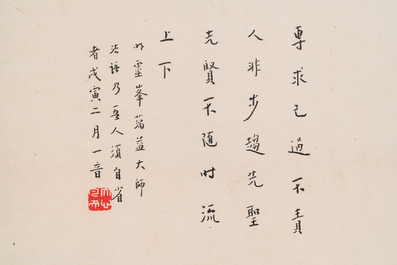 專求己過不責
人非步趨先聖
先賢不隨时流
上下
明靈峯蕅益大师
法語乃吾人須自省
者戊寅二月一音